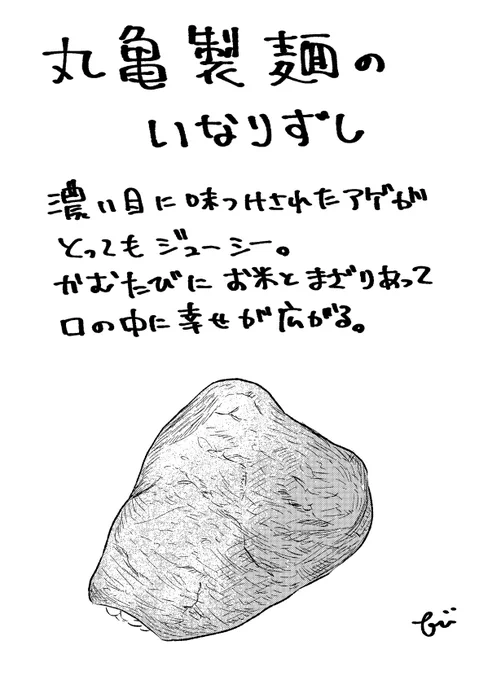 丸亀製麺の
いなりずし
濃い目に味つけされたアゲが
とってもジューシー。
かむたびにお米とまざりあって
口の中に幸せが広がる。